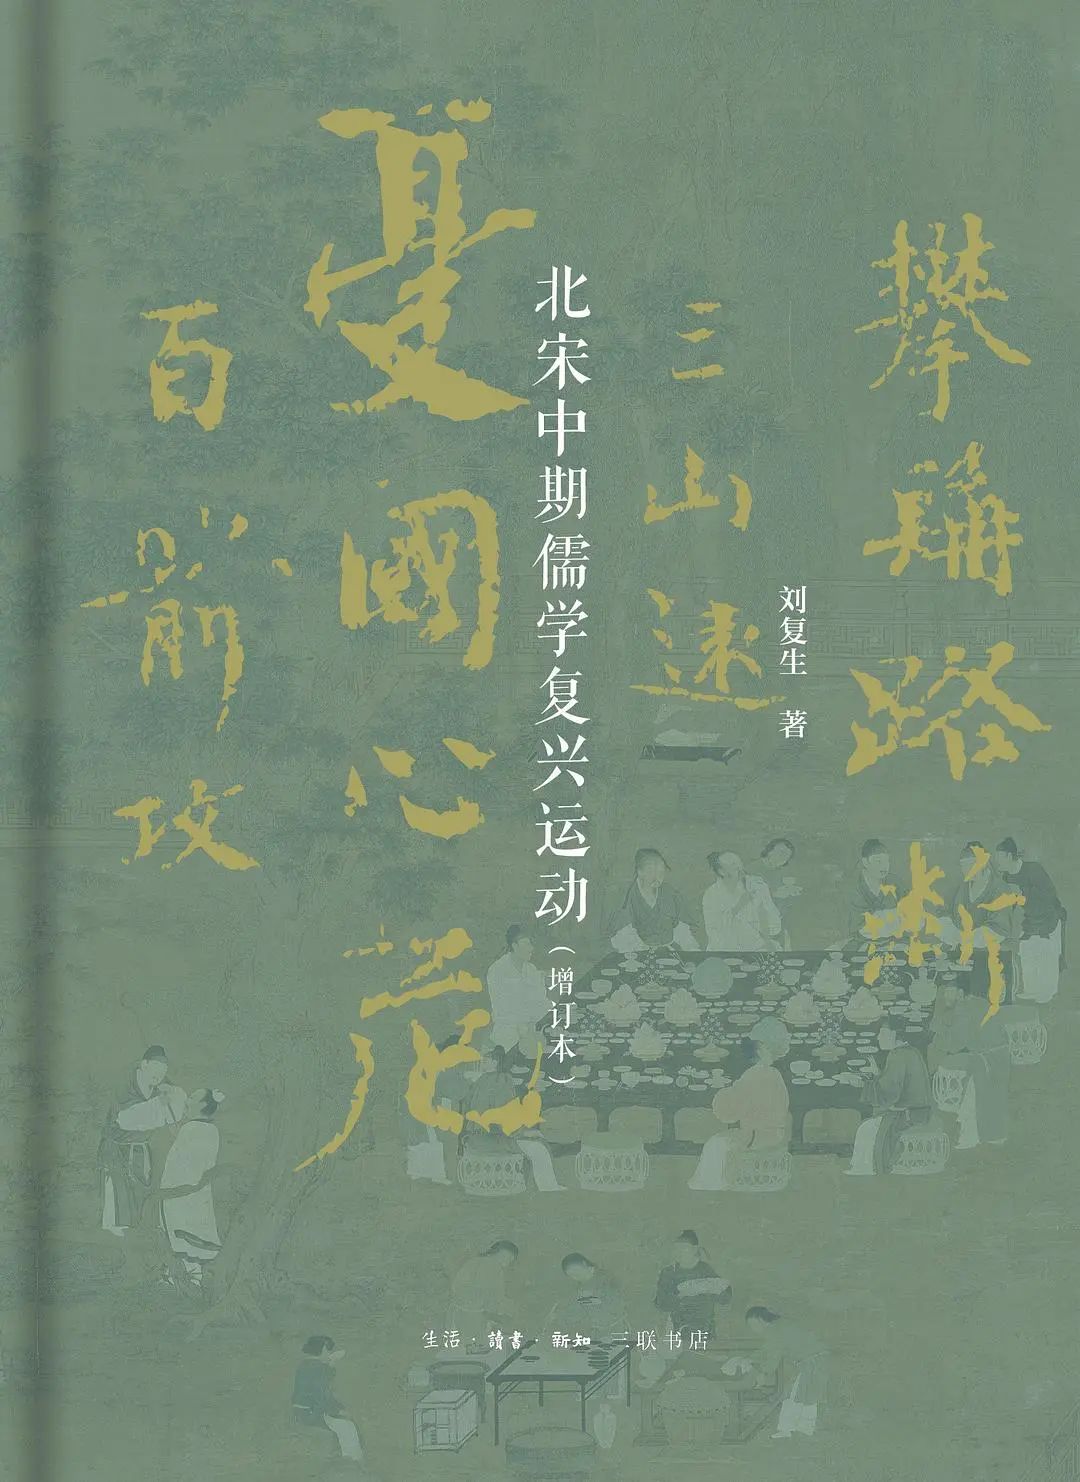 攀路断
刘复生 著
三山遠
北宋中期儒学复兴运动（增订本）
憂國心危
百箭攻
生活·讀書·新知 三联书店